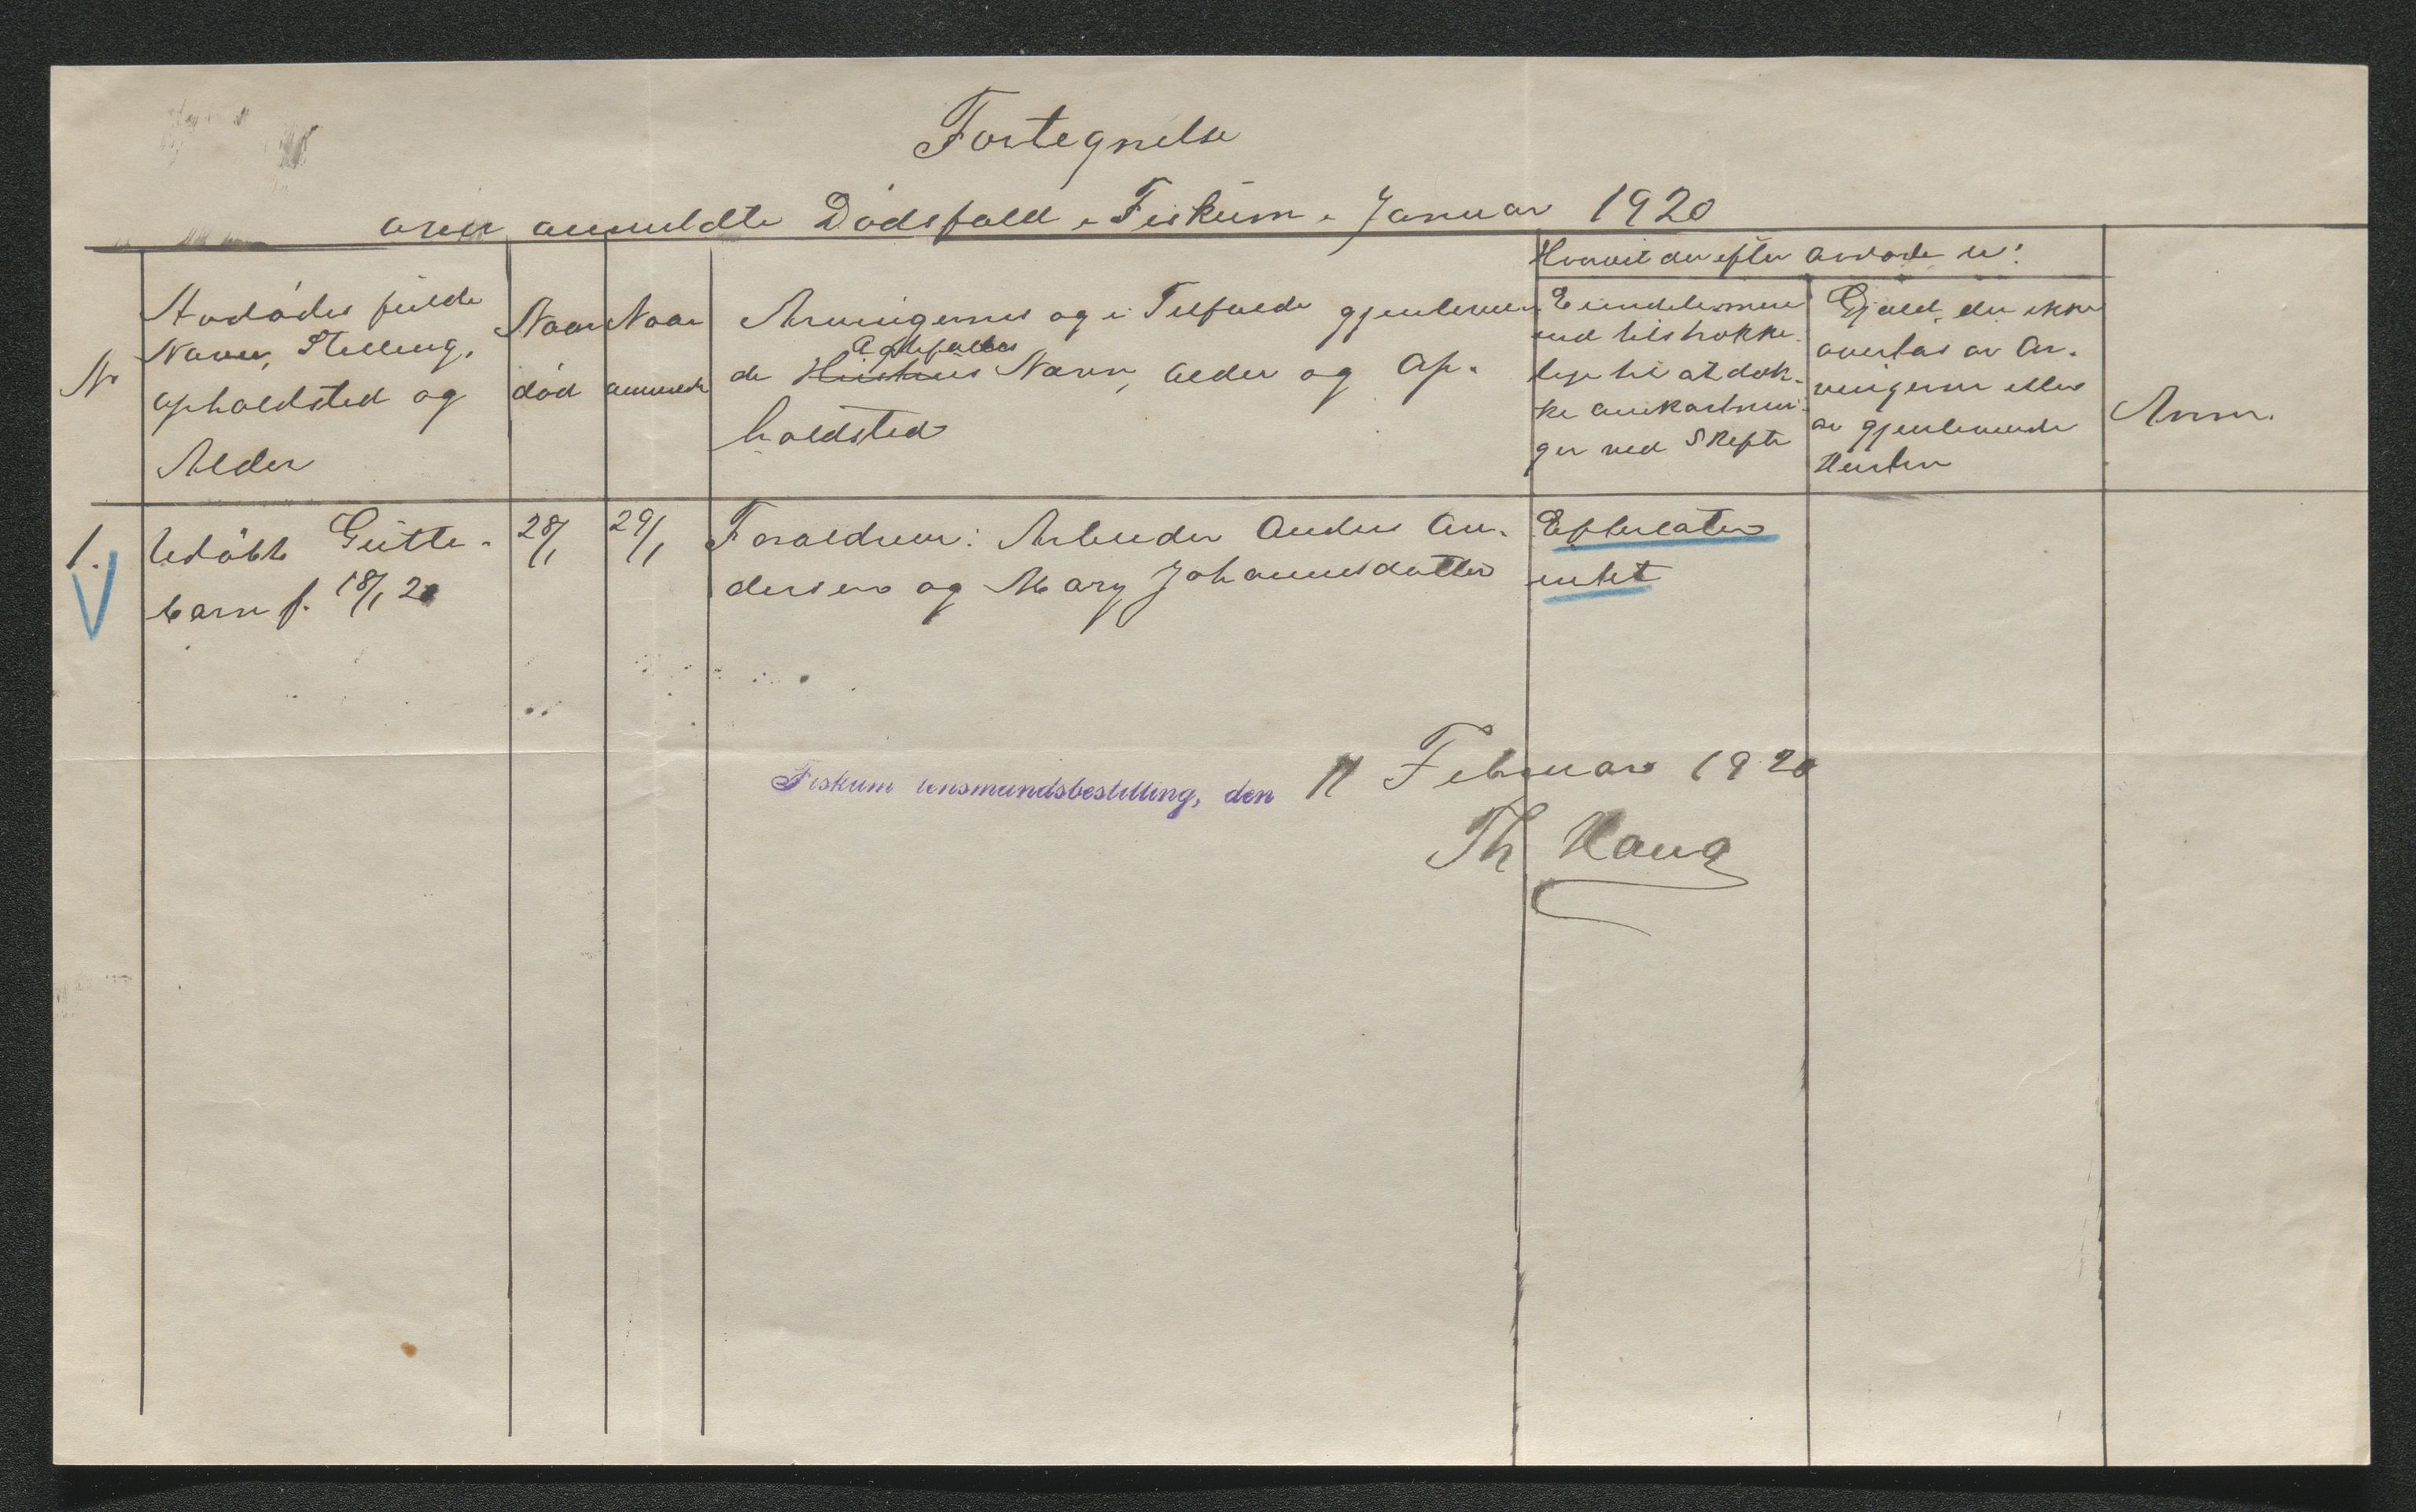 Fortegnelse
over anmeldte Dødsfald i Fiskum i Januar 1920
Nr
Avdødes fulde
Navn, Stilling,
opholdsted og
Alder
Naar
død
Naar
anmeldt
Arvingernes og i Tilfælde gjenleven
Ægtefælles
de Hustrus Navn, Alder og Op-
holdsted
Hvorvidt der efter avdøde er:
Eiendele mere
end tilstrække-
lige til at dæk-
ke omkostnin-
ger ved Skifte
Gjæld, der ikke
overtas av Ar-
vingerne eller
av gjenlevende
Hustru
Anm.
1.
Udøbt Gutte-
barn f. 18/1 20
28/1
29/1
Forældrene: Arbeider Anders An-
dersen og Mary Johannesdatter
Efterlater
intet
Fiskum lensmandsbestilling, den Februar 1920
Th Haug